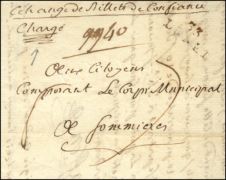 Echange de Billets de Confiance
Chargé
9940
77
Aux Citoyens
Composant Le Corps Municipal
de Sommieres